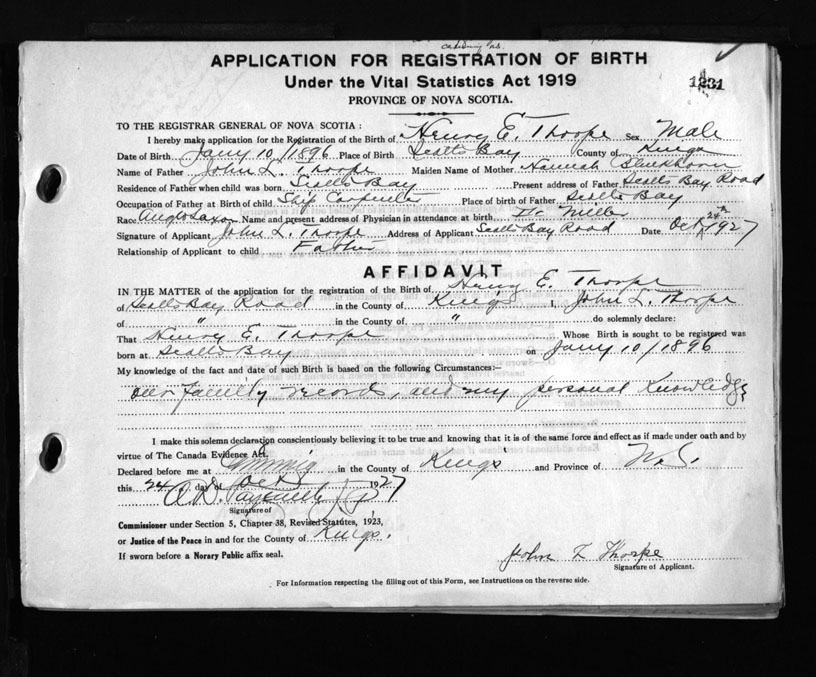 APPLICATION FOR REGISTRATION OF BIRTH
Under the Vital Statistics Act 1919
1231
PROVINCE OF NOVA SCOTIA.
TO THE REGISTRAR GENERAL OF NOVA SCOTIA :
I hereby make application for the Registration of the Birth of Henry E. Thorpe Sex Male
Date of Birth Jany 10/1896 Place of Birth Bay County of Kings
Name of Father John L. Thorpe Maiden Name of Mother Hannah
Residence of Father when child was born Bay Present address of Father Bay Road
Occupation of Father at Birth of child Ship Carpenter Place of birth of Father Bay
Race Anglo Saxon Name and present address of Physician in attendance at birth Dr Miller
Signature of Applicant John L. Thorpe Address of Applicant Bay Road Date Oct 24th 1927
Relationship of Applicant to child Father
AFFIDAVIT
IN THE MATTER of the application for the registration of the Birth of Henry E. Thorpe
of Bay Road in the County of Kings I, John L. Thorpe
of " in the County of " do solemnly declare:
That Henry E. Thorpe Whose Birth is sought to be registered was
born at Bay on Jany 10/1896
My knowledge of the fact and date of such Birth is based on the following Circumstances:—
our family records, and my personal Knowledge
I make this solemn declaration conscientiously believing it to be true and knowing that it is of the same force and effect as if made under oath and by
virtue of The Canada Evidence Act.
Declared before me at in the County of Kings and Province of N.S.
this 24 day of Oct 1927
Signature of
Commissioner under Section 5, Chapter 38, Revised Statutes, 1923,
or Justice of the Peace in and for the County of Kings.
If sworn before a Norary Public affix seal.
John L Thorpe
Signature of Applicant.
For Information respecting the filling out of this Form, see Instructions on the reverse side.